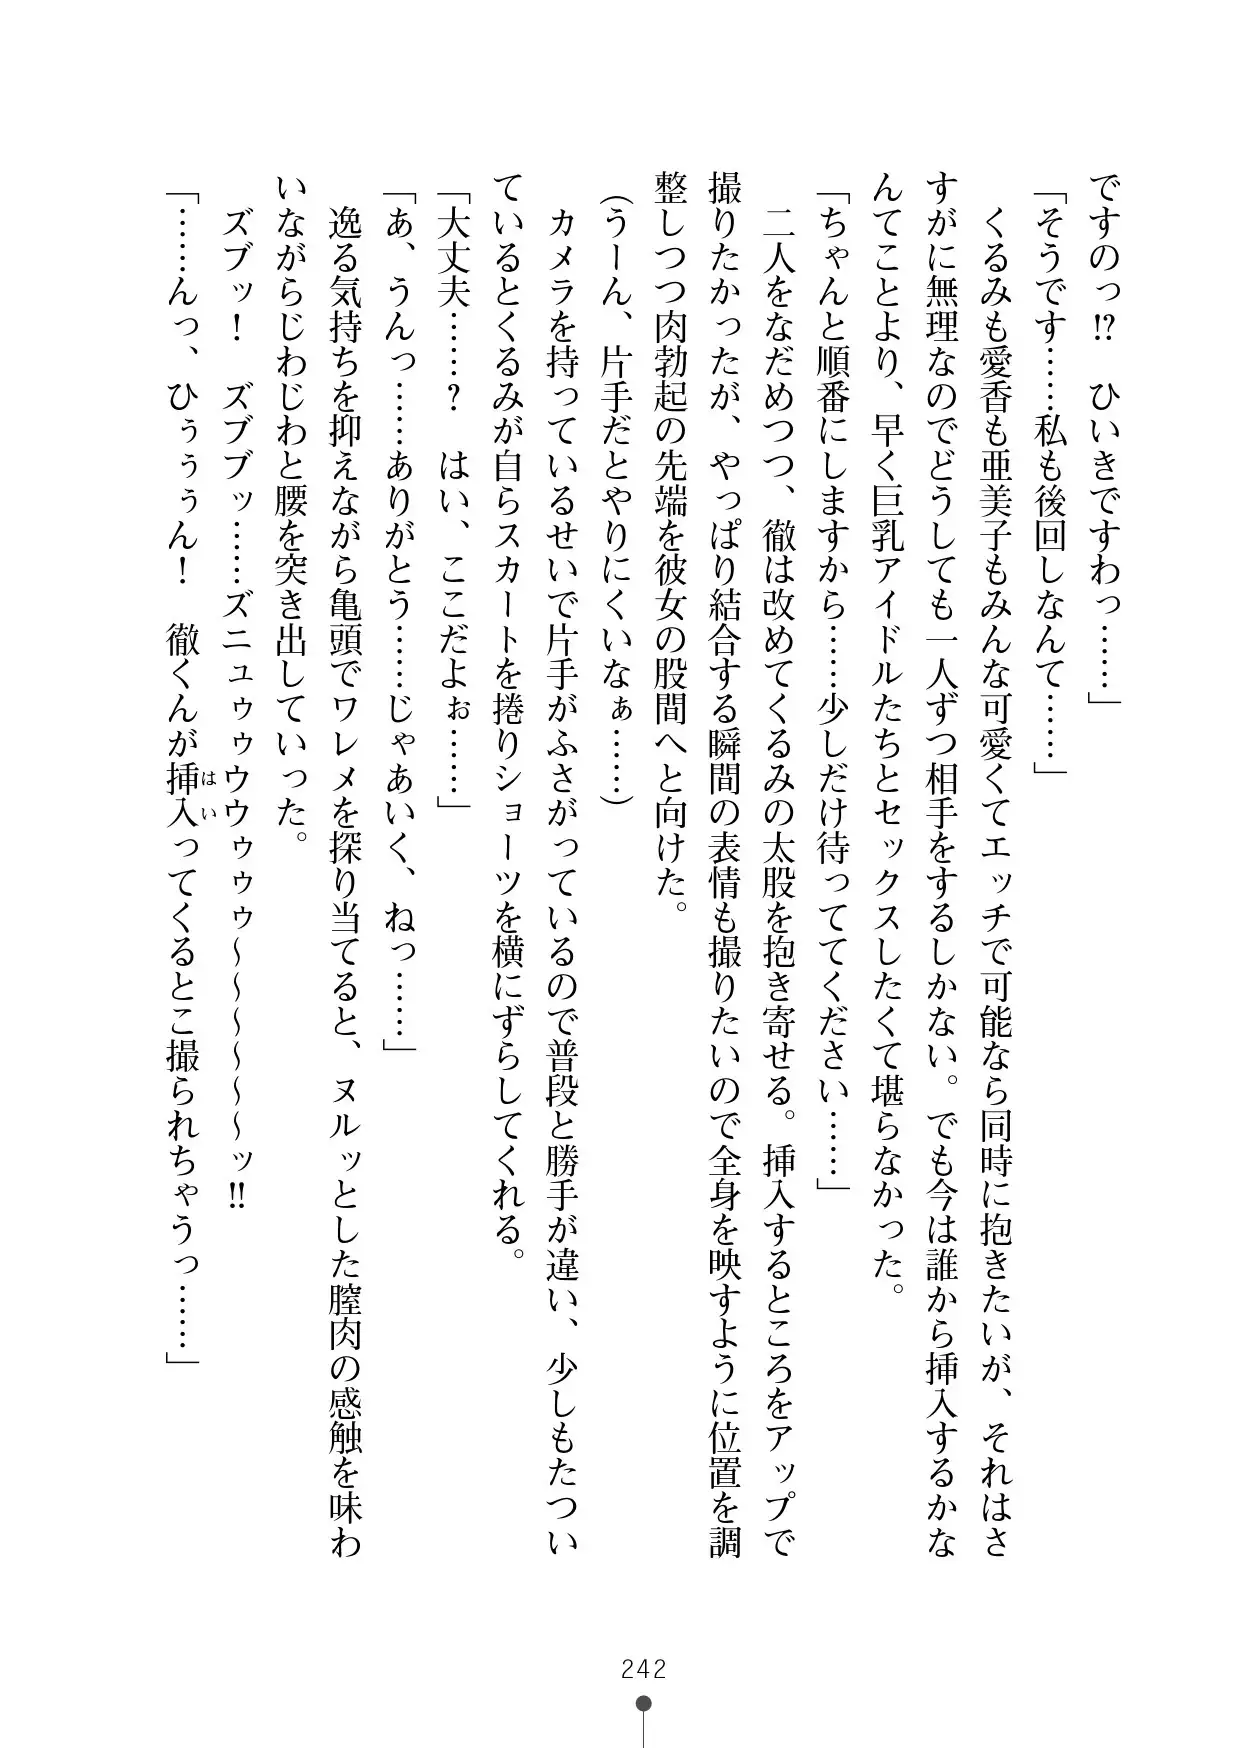 ですのっ!?　ひいきですわっ……」
「そうです……私も後回しなんて……」
　くるみも愛香も亜美子もみんな可愛くてエッチで可能なら同時に抱きたいが、それはさ
すがに無理なのでどうしても一人ずつ相手をするしかない。でも今は誰から挿入するかな
んてことより、早く巨乳アイドルたちとセックスしたくて堪らなかった。
「ちゃんと順番にしますから……少しだけ待っててください……」
　二人をなだめつつ、徹は改めてくるみの太股を抱き寄せる。挿入するところをアップで
撮りたかったが、やっぱり結合する瞬間の表情も撮りたいので全身を映すように位置を調
整しつつ肉勃起の先端を彼女の股間へと向けた。
（うーん、片手だとやりにくいなぁ……）
　カメラを持っているせいで片手がふさがっているので普段と勝手が違い、少しもたつい
ているとくるみが自らスカートを捲りショーツを横にずらしてくれる。
「大丈夫……？　はい、ここだよぉ……」
「あ、うんっ……ありがとう……じゃあいく、ねっ……」
　逸る気持ちを抑えながら亀頭でワレメを探り当てると、ヌルッとした膣肉の感触を味わ
いながらじわじわと腰を突き出していった。
　ズブッ！　ズブブッ……ズニュゥゥウウゥゥゥ～～～～～～ッ!!
「……んっ、ひぅぅぅん！　徹くんが挿入ってくるとこ撮られちゃうっ……」
はい
242